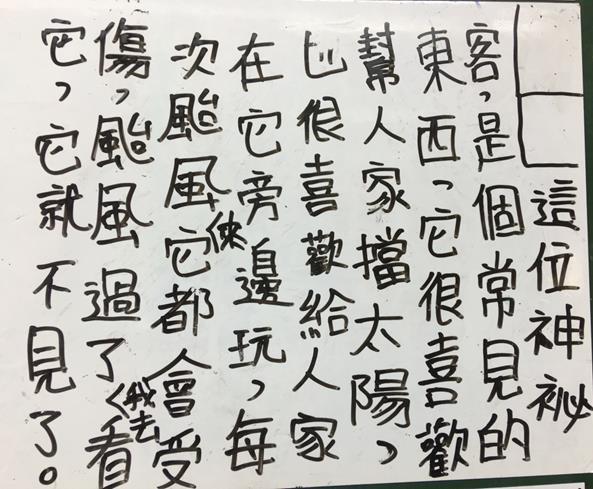 這位神祕
客，是個常見的
東西，它很喜歡
幫人家擋太陽，
也很喜歡給人家
在它旁邊玩，每
次颱風俠它都會受
傷，颱風過了我去看
它，它就不見了。